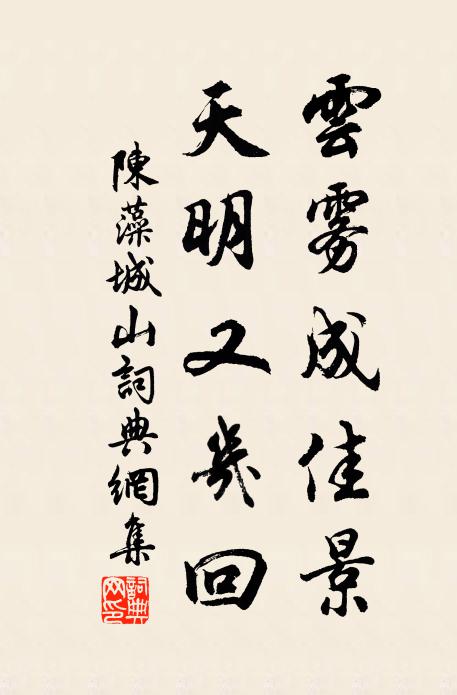 雲雾成佳景
天明又幾回
陳藻城山詞典網集
詞典網印